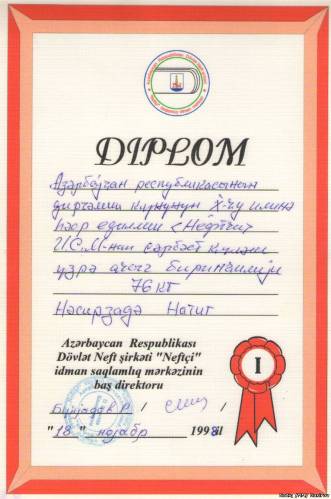 DIPLOM
Азәрбајҹан республикасынын
дирчәлиш күнүнүн X-чу илинә
һәср едилмиш «Нефтчи»
ИСМ-нин сәрбәст күләш
үзрә ачыг биринҹилији
76 кг
Насирзадә Натиг
Azərbaycan Respublikası
Dövlət Neft şirkəti "Neftçi"
idman sağlamlıq mərkəzinin
baş direktoru
I
"18" нојабр 1998 il